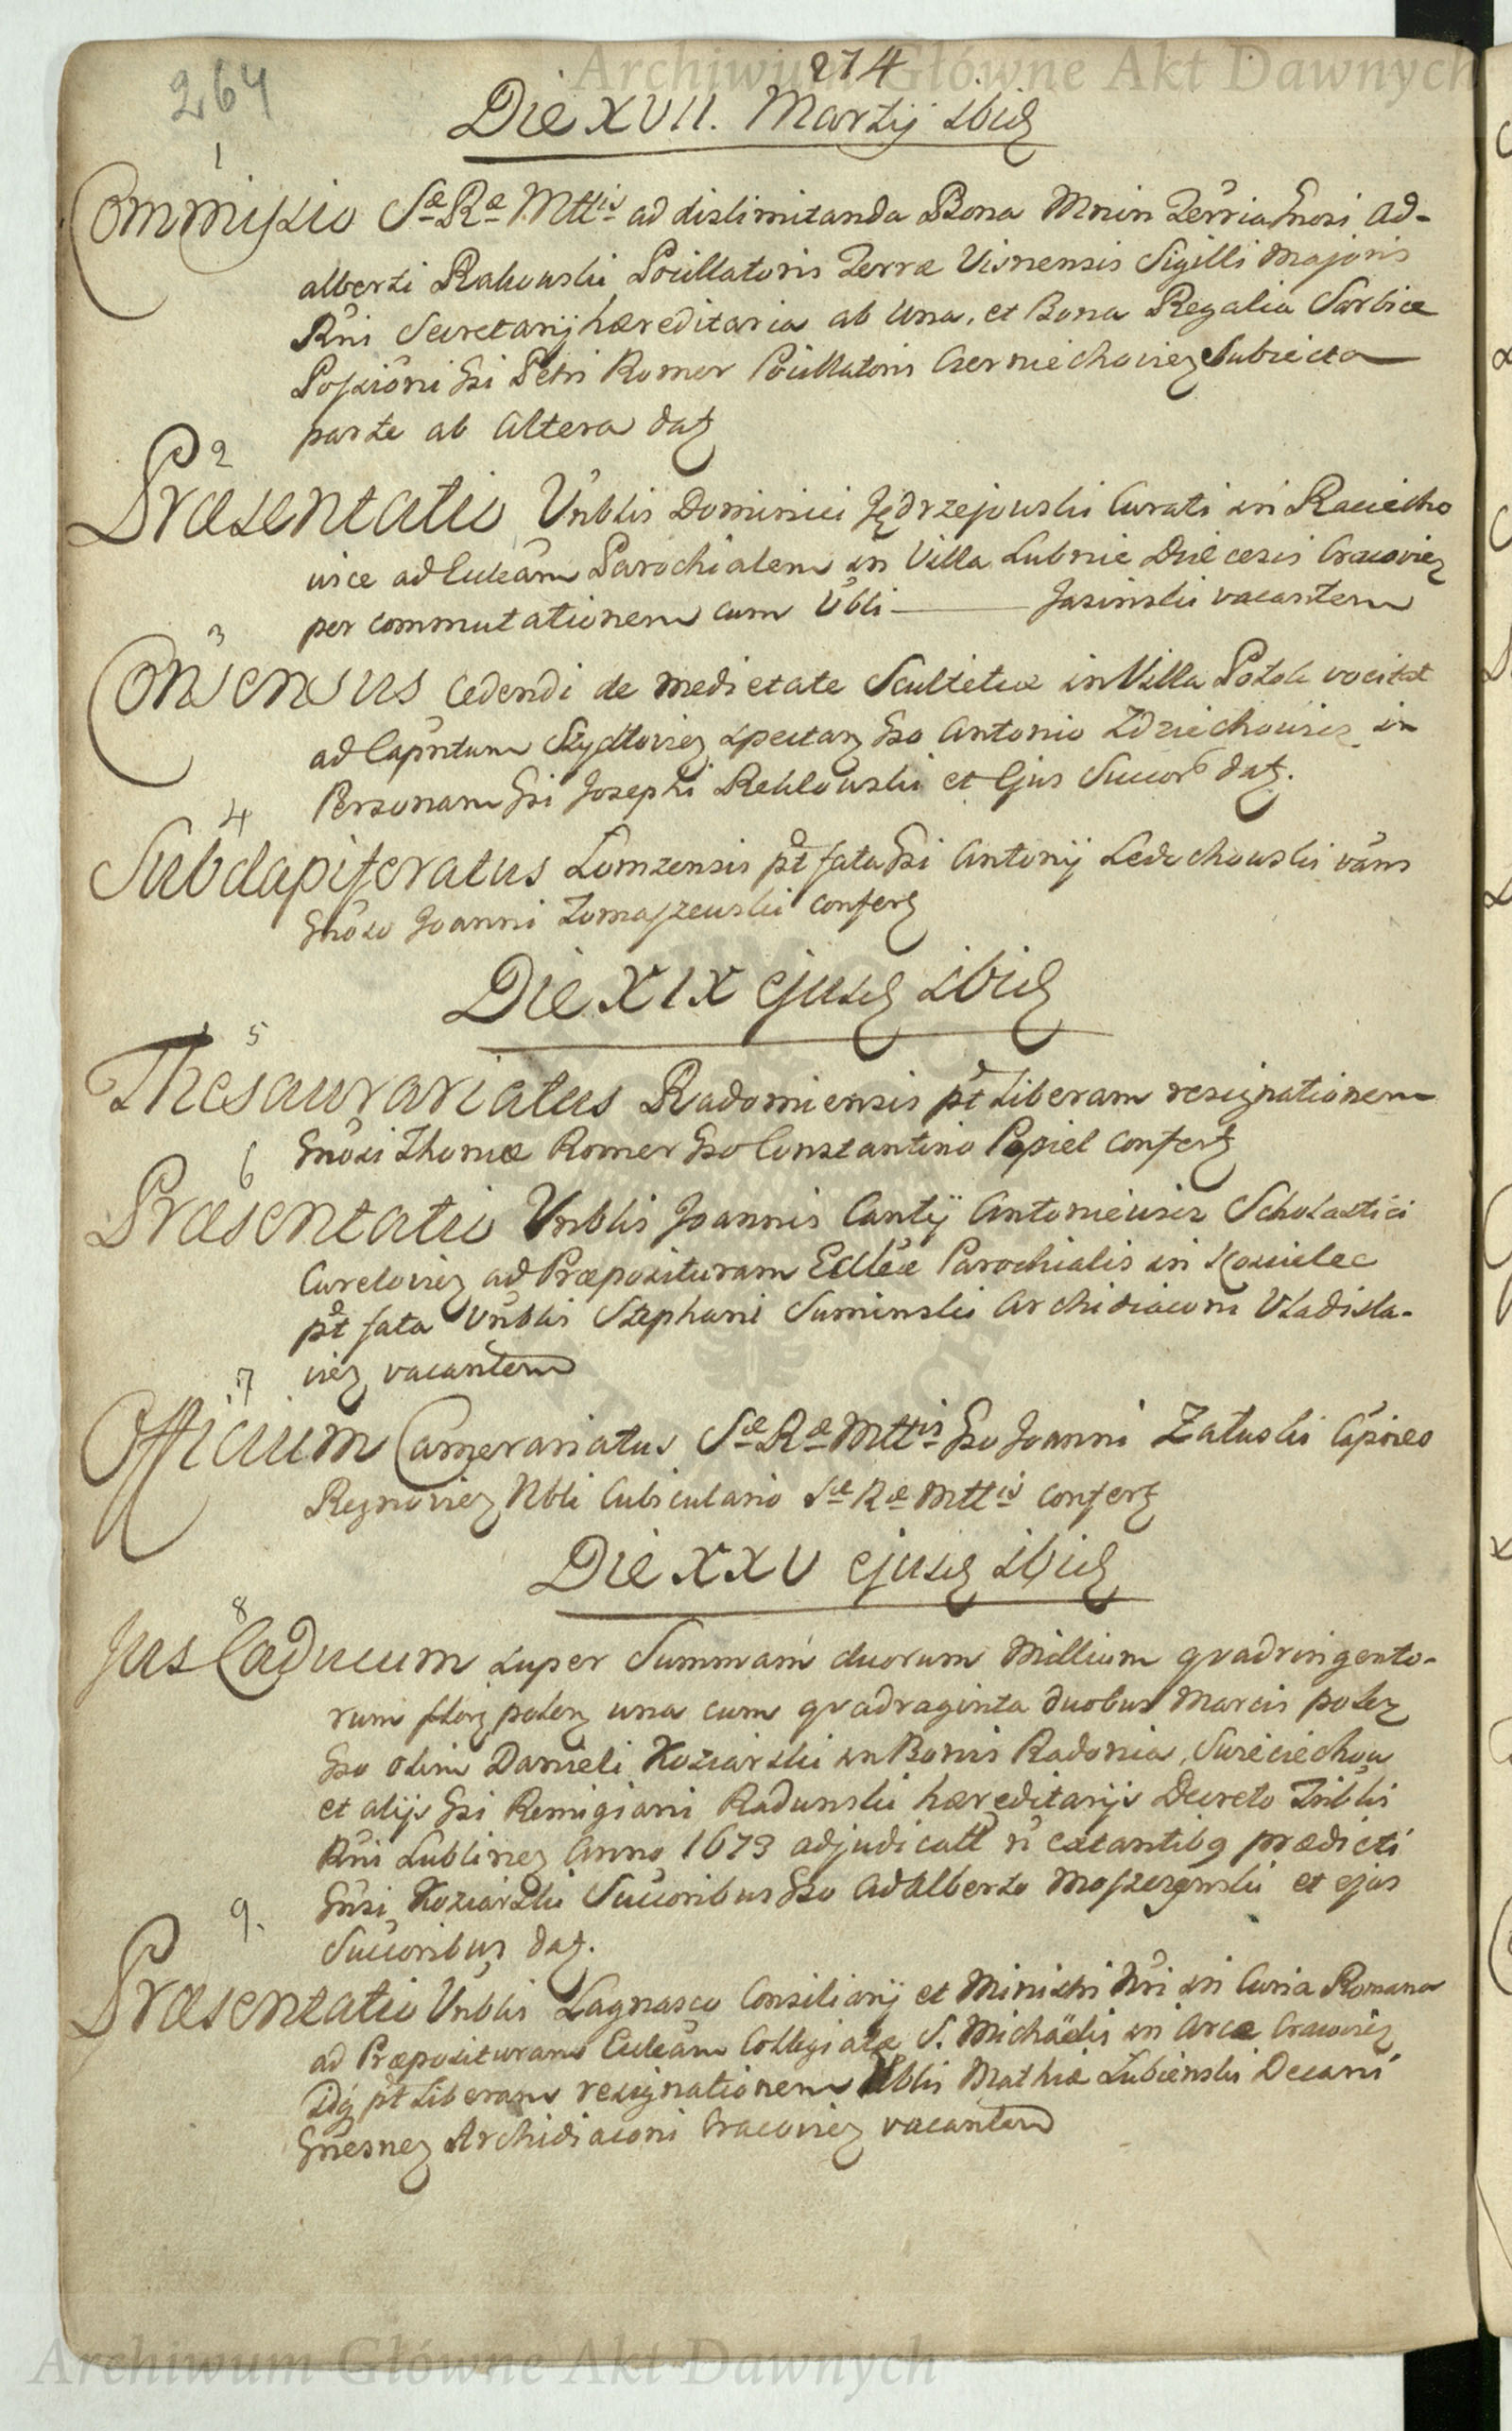 Archiwum Główne Akt Dawnych
264
274
Die XVII. Martij ibid
1
Commissio Sæ Ræ Mttis ad dislimitanda Bona Mnin Terria Gnosi Ad-
alberti Rakowski Pocillatoris Terræ Visnensis Sigilli Majoris
Rni Secretarij hæreditaria ab una, et Bona Regalia Sarbice
Possioni Gsi Petri Romer Pocillatoris Czerniechovien Subiecta
parte ab altera dat
2
Præsentatio Vnblis Dominici Jędrzejowski Curati in Raciecho
vice ad Eccleam Parochialem in Villa Lubnie Diæcesis Cracovien
per commutationem cum Vbli ——— Jasinski vacantem
3
Consensus cedendi de medietate Scultetiæ in Villa Potok vocitat
ad Capntum Szydlovien spectan Gso Antonio Zdziechowicz in
Personam Gsi Josephi Reklowski et Ejus Succor dat.
4
Subdapiferatus Lomzensis pt fata Gsi Antonij Ledochowski vans
Gnoso Joanni Tomaszewski confert
Die XIX ejusd ibid
5
Thesaurariatus Radomiensis pt Liberam resignationem
Gnosi Thomæ Romer Gso Constantino Popiel confert
6
Præsentatio Vnblis Joannis Cantij Antoniewicz Scholastici
Curelovien ad Præposituram Ecclæ Parochialis in Koscielec
pt fata Vnblis Stephani Suminski Archidiaconi Vladisla-
vien vacantem
7
Officium Camerariatus Sæ Ræ Mttis Gso Joanni Zatuski Capneo
Regnovien Nbli Cubiculario Sæ Ræ Mttis confert
Die XXV ejusd ibid
8
Jus Caducum super Summam duorum Millium qvadringento-
rum flor polon una cum qvadraginta duobus Marcis polon
Gso olim Danieli Koziarski in Bonis Radonia, Swieciechow
et alijs Gsi Remigiani Radunski hæreditarijs Decreto Tribblis
Rni Lublinen Anno 1673 adjudicatt n extantibq prædicti
Gnsi Koziarski Succoribus Gso Adalberto Moszczynski et ejus
Succoribus dat.
9.
Præsentatio Vnblis Lagnasco Consiliarij et Ministri Nri in Curia Romana
ad Præposituram Eccleam Collegiatæ S. Michaëlis in Arce Cracovien
Idq pt Liberam resignationem Vblis Mathiæ Lubienski Decani
Gnesnen Archidiaconi Cracovien vacantem
Archiwum Główne Akt Dawnych